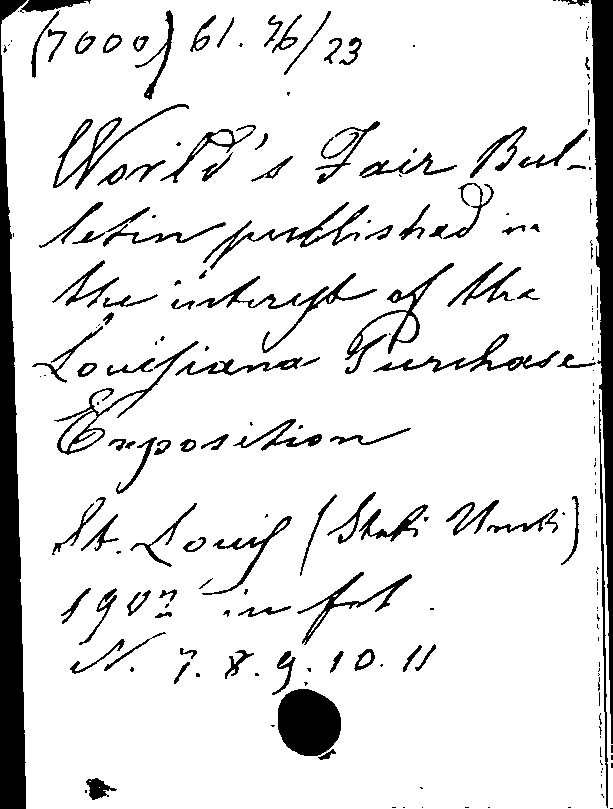 (7000) 61. 76/23
World's Fair Bul-
letin published in
the interest of the
Louisiana Purchase
Exposition
St. Louis (Stati Uniti)
1902 in fol.
N. 7. 8. 9. 10. 11